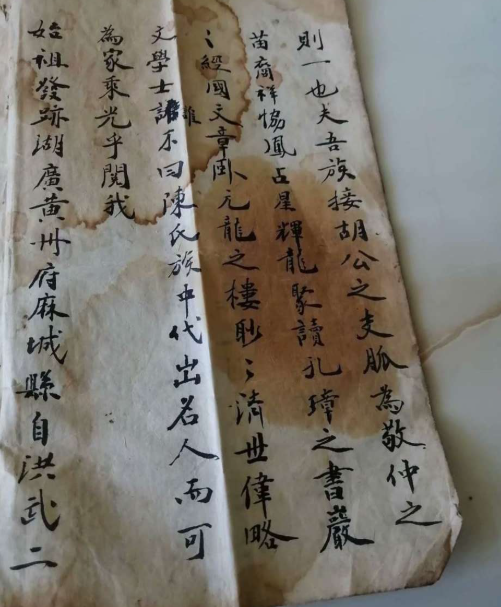 則一也夫吾族接胡公之支脈為敬仲之
苗裔祥恊鳳占星輝龍聚讀孔璋之書嚴
〻經國文章卧元龍之樓眇〻清世偉略
文學士誰不曰陳氏族中代出名人而可
為家乘光乎閱我
始祖發跡湖廣黄州府麻城縣自洪武二